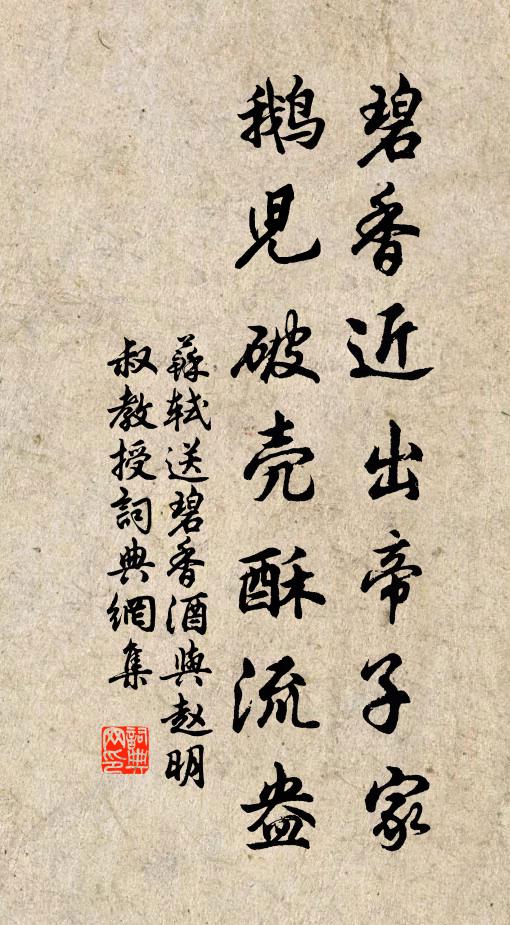 碧香近出帝子家
鵝児破壳酥流盎
蘇軾送碧香酒與赵明
叔教授詞典網集
詞典网印